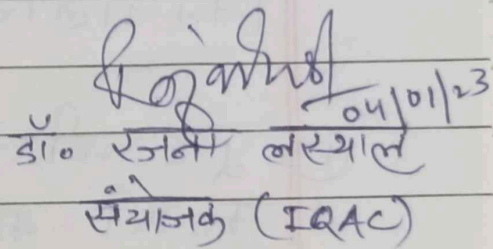 04/01/23
डॉ० रजनी लस्याल
संयोजक (IQAC)